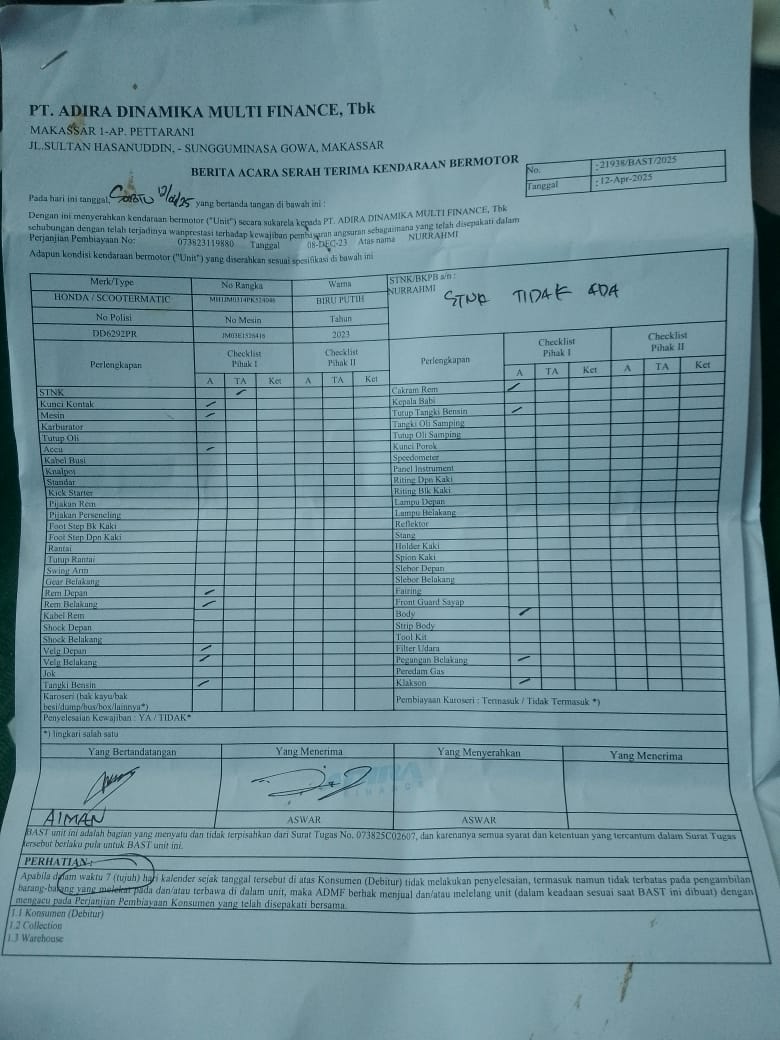 PT. ADIRA DINAMIKA MULTI FINANCE, Tbk
MAKASSAR 1-AP. PETTARANI
JL.SULTAN HASANUDDIN, - SUNGGUMINASA GOWA, MAKASSAR
BERITA ACARA SERAH TERIMA KENDARAAN BERMOTOR
No. : 21938/BAST/2025
Tanggal : 12-Apr-2025
Pada hari ini tanggal, yang bertanda tangan di bawah ini :
Dengan ini menyerahkan kendaraan bermotor ("Unit") secara sukarela kepada PT. ADIRA DINAMIKA MULTI FINANCE, Tbk
sehubungan dengan telah terjadinya wanprestasi terhadap kewajiban pembayaran angsuran sebagaimana yang telah disepakati dalam
Perjanjian Pembiayaan No: 073823119880 Tanggal 08-DEC-23 Atas nama NURRAHMI
Adapun kondisi kendaraan bermotor ("Unit") yang diserahkan sesuai spesifikasi di bawah ini
Merk/Type No Rangka Warna STNK/BKPB a/n :
HONDA / SCOOTERMATIC BIRU PUTIH NURRAHMI
STNK TIDAK ADA
No Polisi No Mesin Tahun
DD6292PR 2023
Perlengkapan Checklist Pihak I Checklist Pihak II Perlengkapan Checklist Pihak I Checklist Pihak II
A TA Ket A TA Ket A TA Ket A TA Ket
STNK Cakram Rem
Kunci Kontak Kepala Babi
Mesin Tutup Tangki Bensin
Karburator Tangki Oli Samping
Tutup Oli Tutup Oli Samping
Accu Kunci Porok
Kabel Busi Speedometer
Knalpot Panel Instrument
Standar Riting Dpn Kaki
Kick Starter Riting Blk Kaki
Pijakan Rem Lampu Depan
Pijakan Perseneling Lampu Belakang
Foot Step Bk Kaki Reflektor
Foot Step Dpn Kaki Stang
Rantai Holder Kaki
Tutup Rantai Spion Kaki
Swing Arm Slebor Depan
Gear Belakang Slebor Belakang
Rem Depan Fairing
Rem Belakang Front Guard Sayap
Kabel Rem Body
Shock Depan Strip Body
Shock Belakang Tool Kit
Velg Depan Filter Udara
Velg Belakang Pegangan Belakang
Jok Peredam Gas
Tangki Bensin Klakson
Karoseri (bak kayu/bak besi/dump/bus/box/lainnya*) Pembiayaan Karoseri : Termasuk / Tidak Termasuk *)
Penyelesaian Kewajiban : YA / TIDAK*
*) lingkari salah satu
Yang Bertandatangan Yang Menerima Yang Menyerahkan Yang Menerima
AIMAN ASWAR ASWAR
BAST unit ini adalah bagian yang menyatu dan tidak terpisahkan dari Surat Tugas No. 073825C02607, dan karenanya semua syarat dan ketentuan yang tercantum dalam Surat Tugas
tersebut berlaku pula untuk BAST unit ini.
PERHATIAN :
Apabila dalam waktu 7 (tujuh) hari kalender sejak tanggal tersebut di atas Konsumen (Debitur) tidak melakukan penyelesaian, termasuk namun tidak terbatas pada pengambilan
barang-barang yang melekat pada dan/atau terbawa di dalam unit, maka ADMF berhak menjual dan/atau melelang unit (dalam keadaan sesuai saat BAST ini dibuat) dengan
mengacu pada Perjanjian Pembiayaan Konsumen yang telah disepakati bersama.
1.1 Konsumen (Debitur)
1.2 Collection
1.3 Warehouse